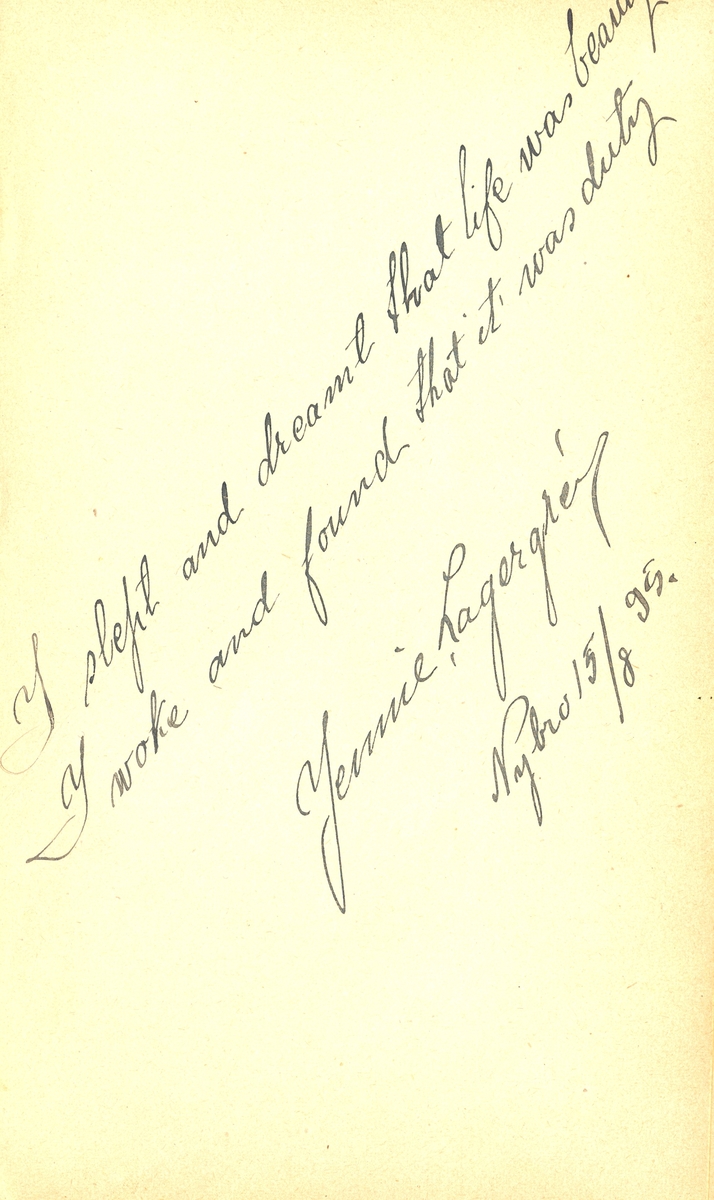 I slept and dreamt that life was beauty
I woke and found that it was duty
Jennie Lagergrén
Nybro 15/8 95.